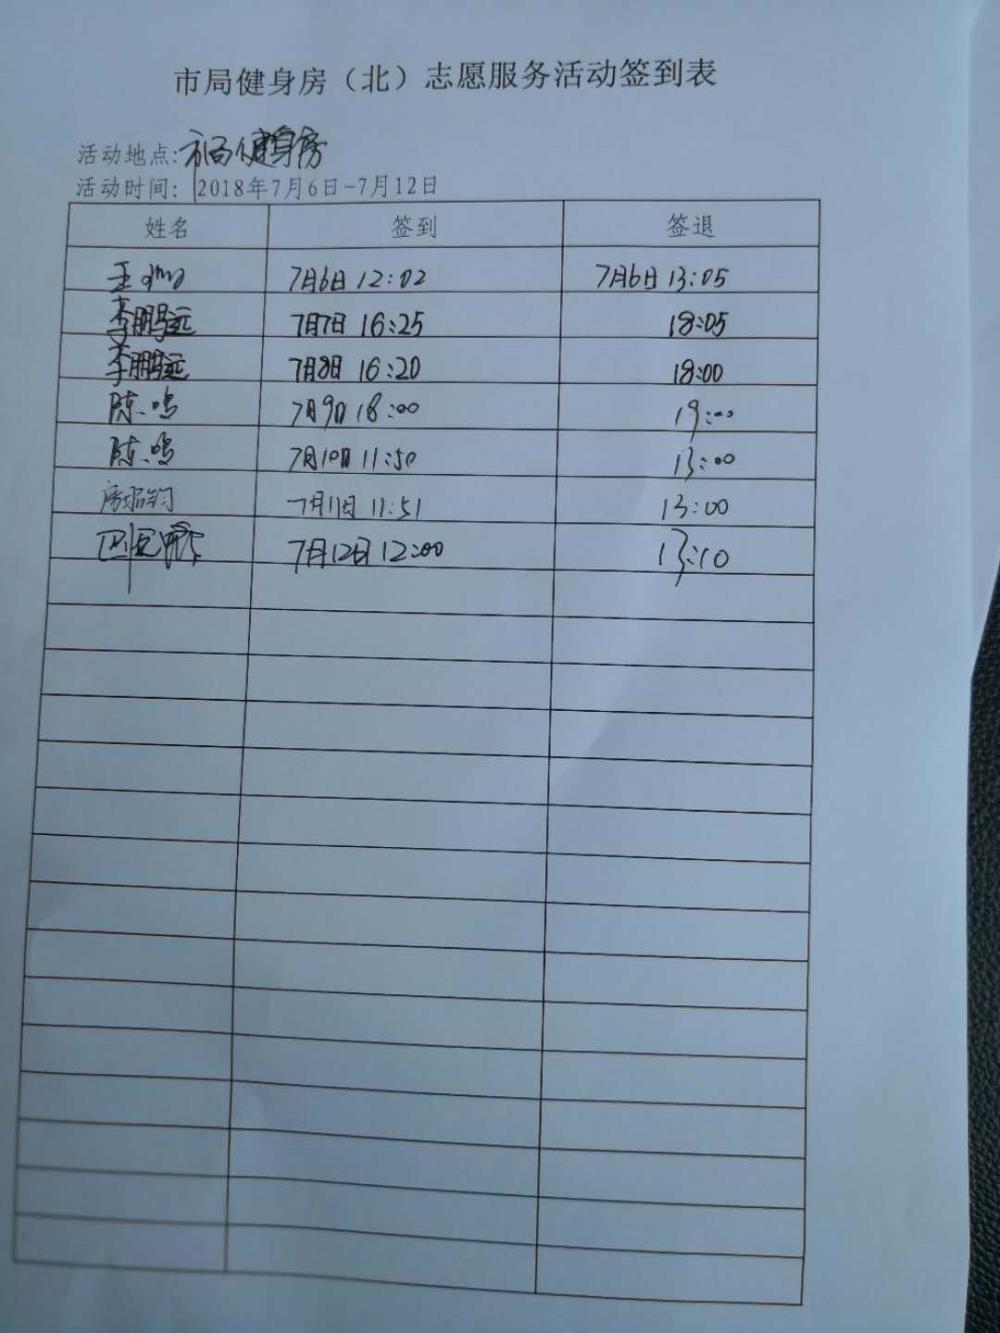 市局健身房（北）志愿服务活动签到表
活动地点:市局健身房
活动时间: 2018年7月6日-7月12日
姓名 签到 签退
王 7月6日 12:02 7月6日 13:05
李鹏远 7月7日 16:25 18:05
李鹏远 7月8日 16:20 18:00
陈鸣 7月9日 18:00 19:00
陈鸣 7月10日 11:50 13:00
7月11日 11:51 13:00
7月12日 12:00 13:10